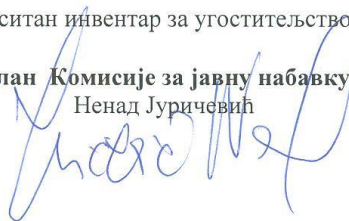 ситан инвентар за угоститељство
лан Комисије за јавну набавку
Ненад Јуричевић